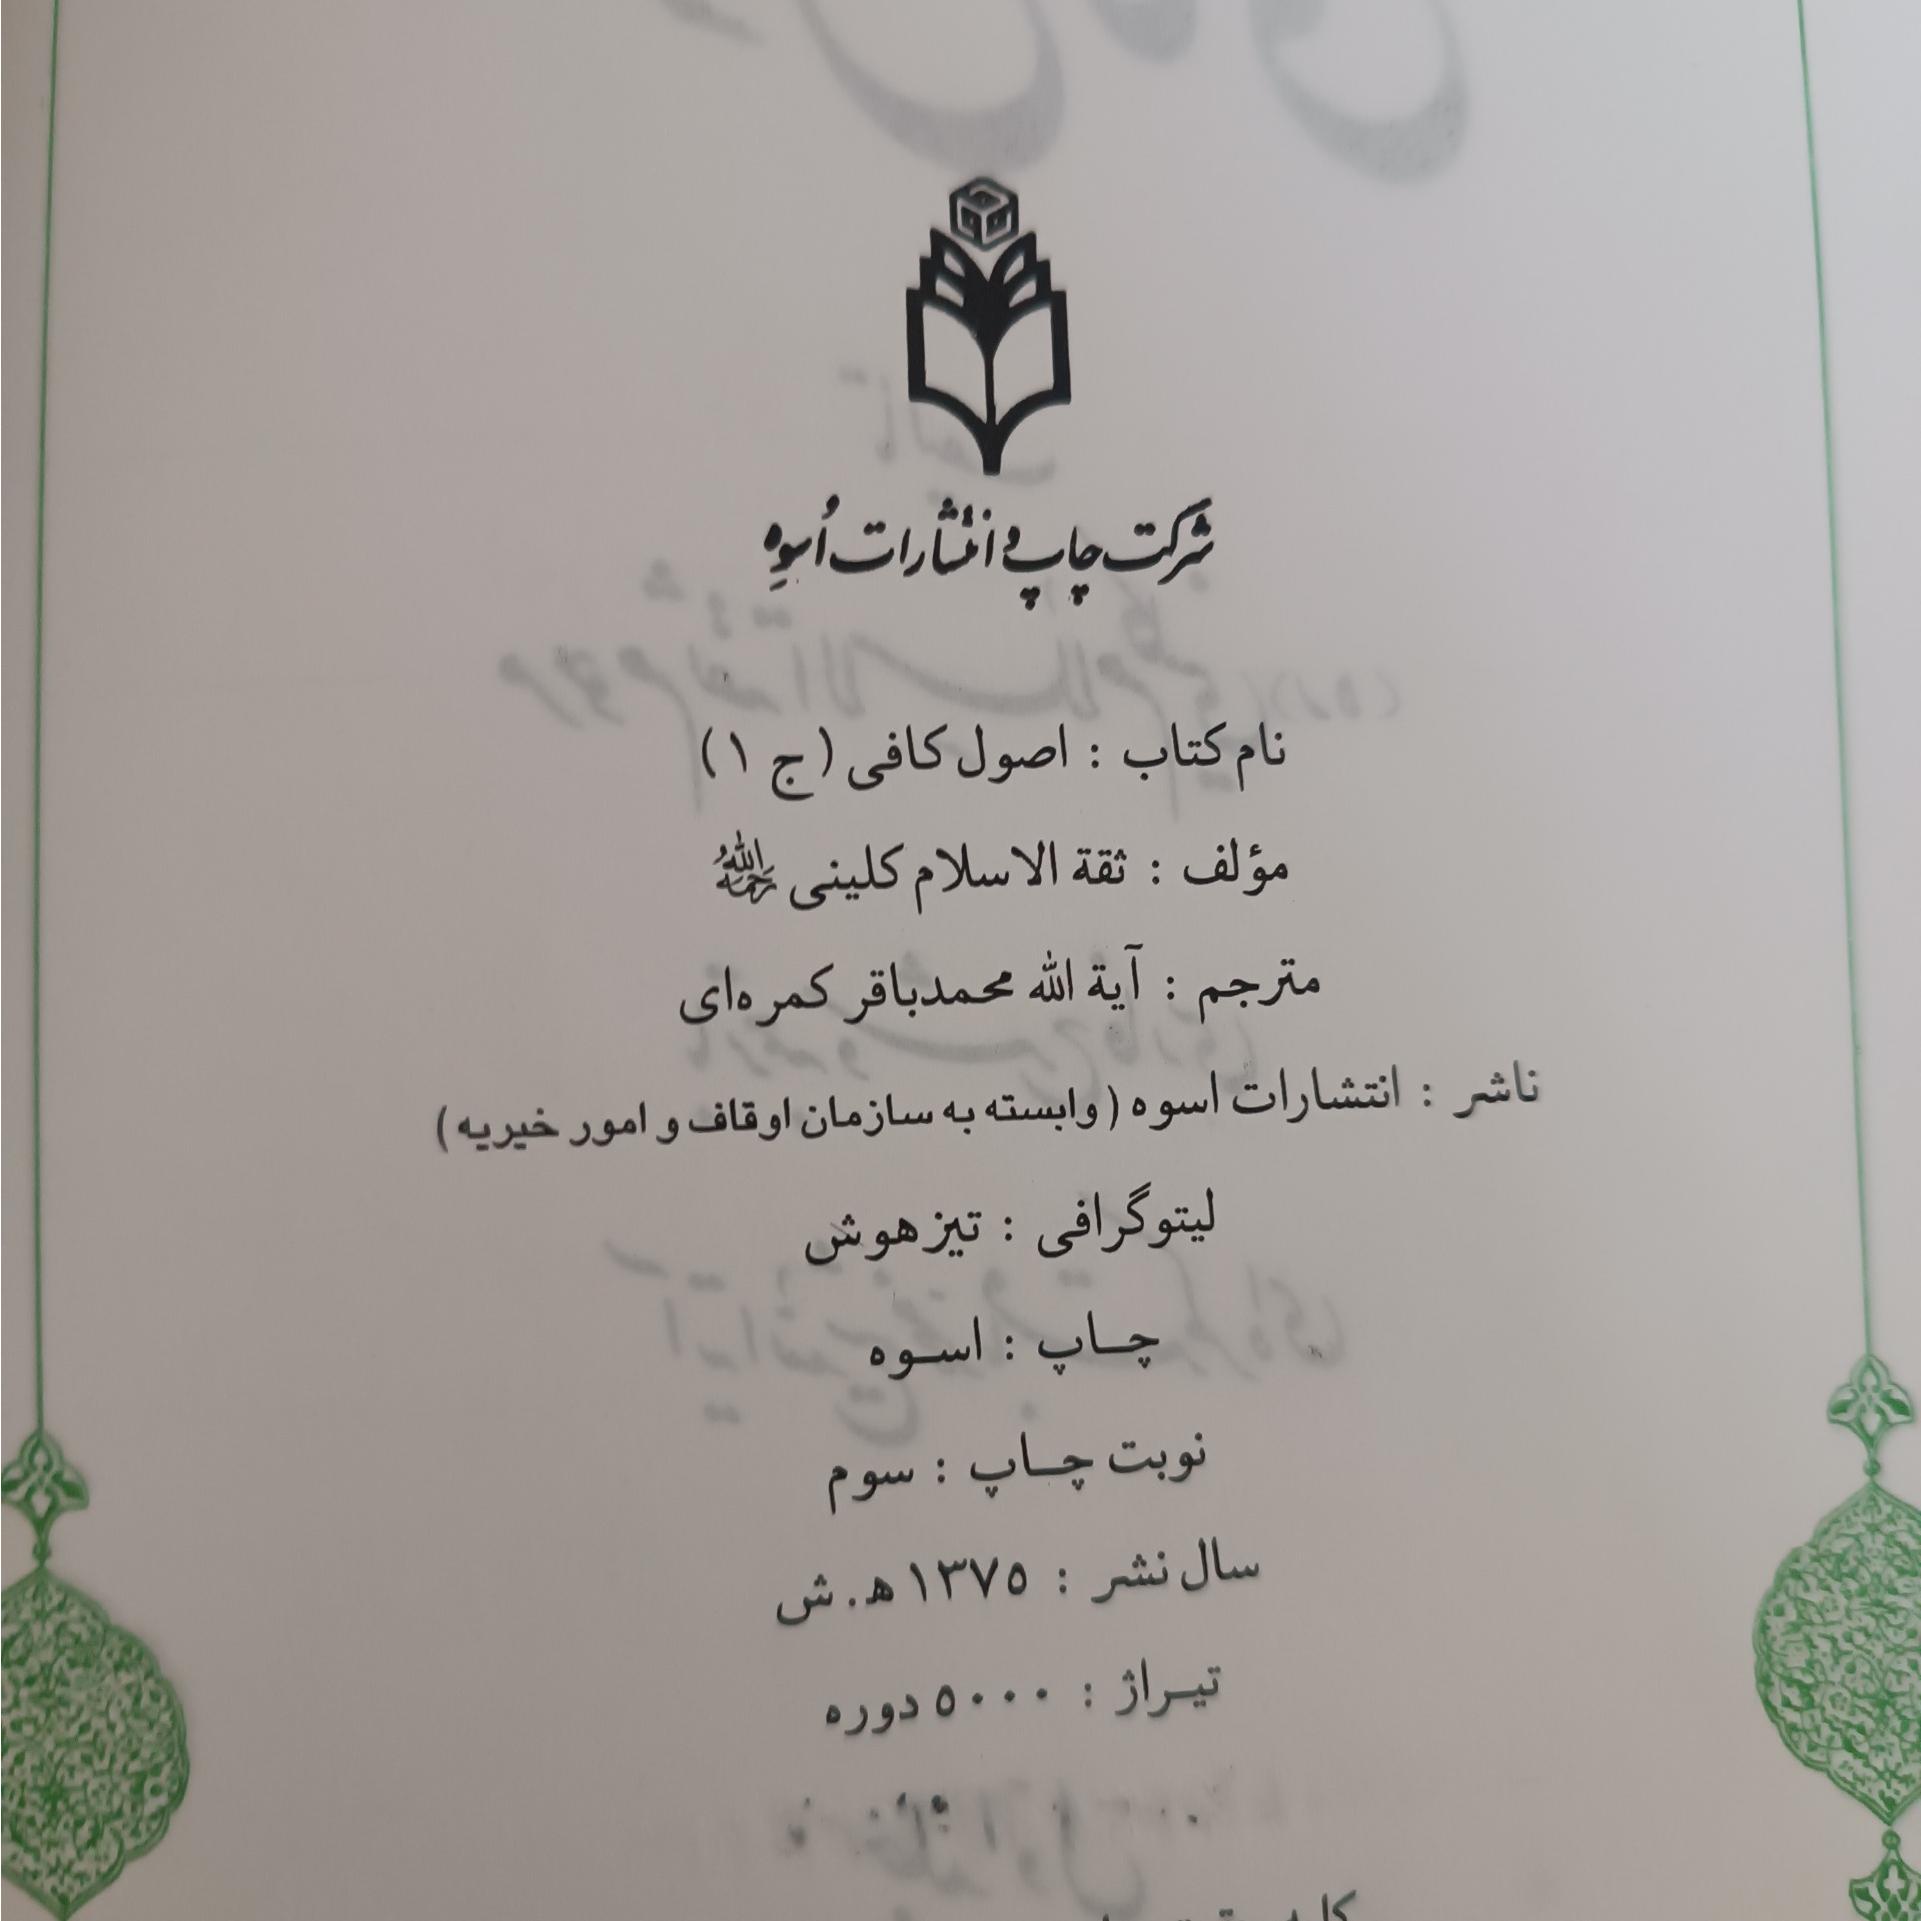 شرکت چاپ و انتشارات اُسوه
نام کتاب : اصول کافی (ج ۱)
مؤلف : ثقة الاسلام کلینی رحمه الله
مترجم : آیة الله محمدباقر کمره‌ای
ناشر : انتشارات اسوه (وابسته به سازمان اوقاف و امور خیریه)
لیتوگرافی : تیزهوش
چاپ : اسوه
نوبت چاپ : سوم
سال نشر : ۱۳۷۵ ه. ش
تیراژ : ۵۰۰۰ دوره